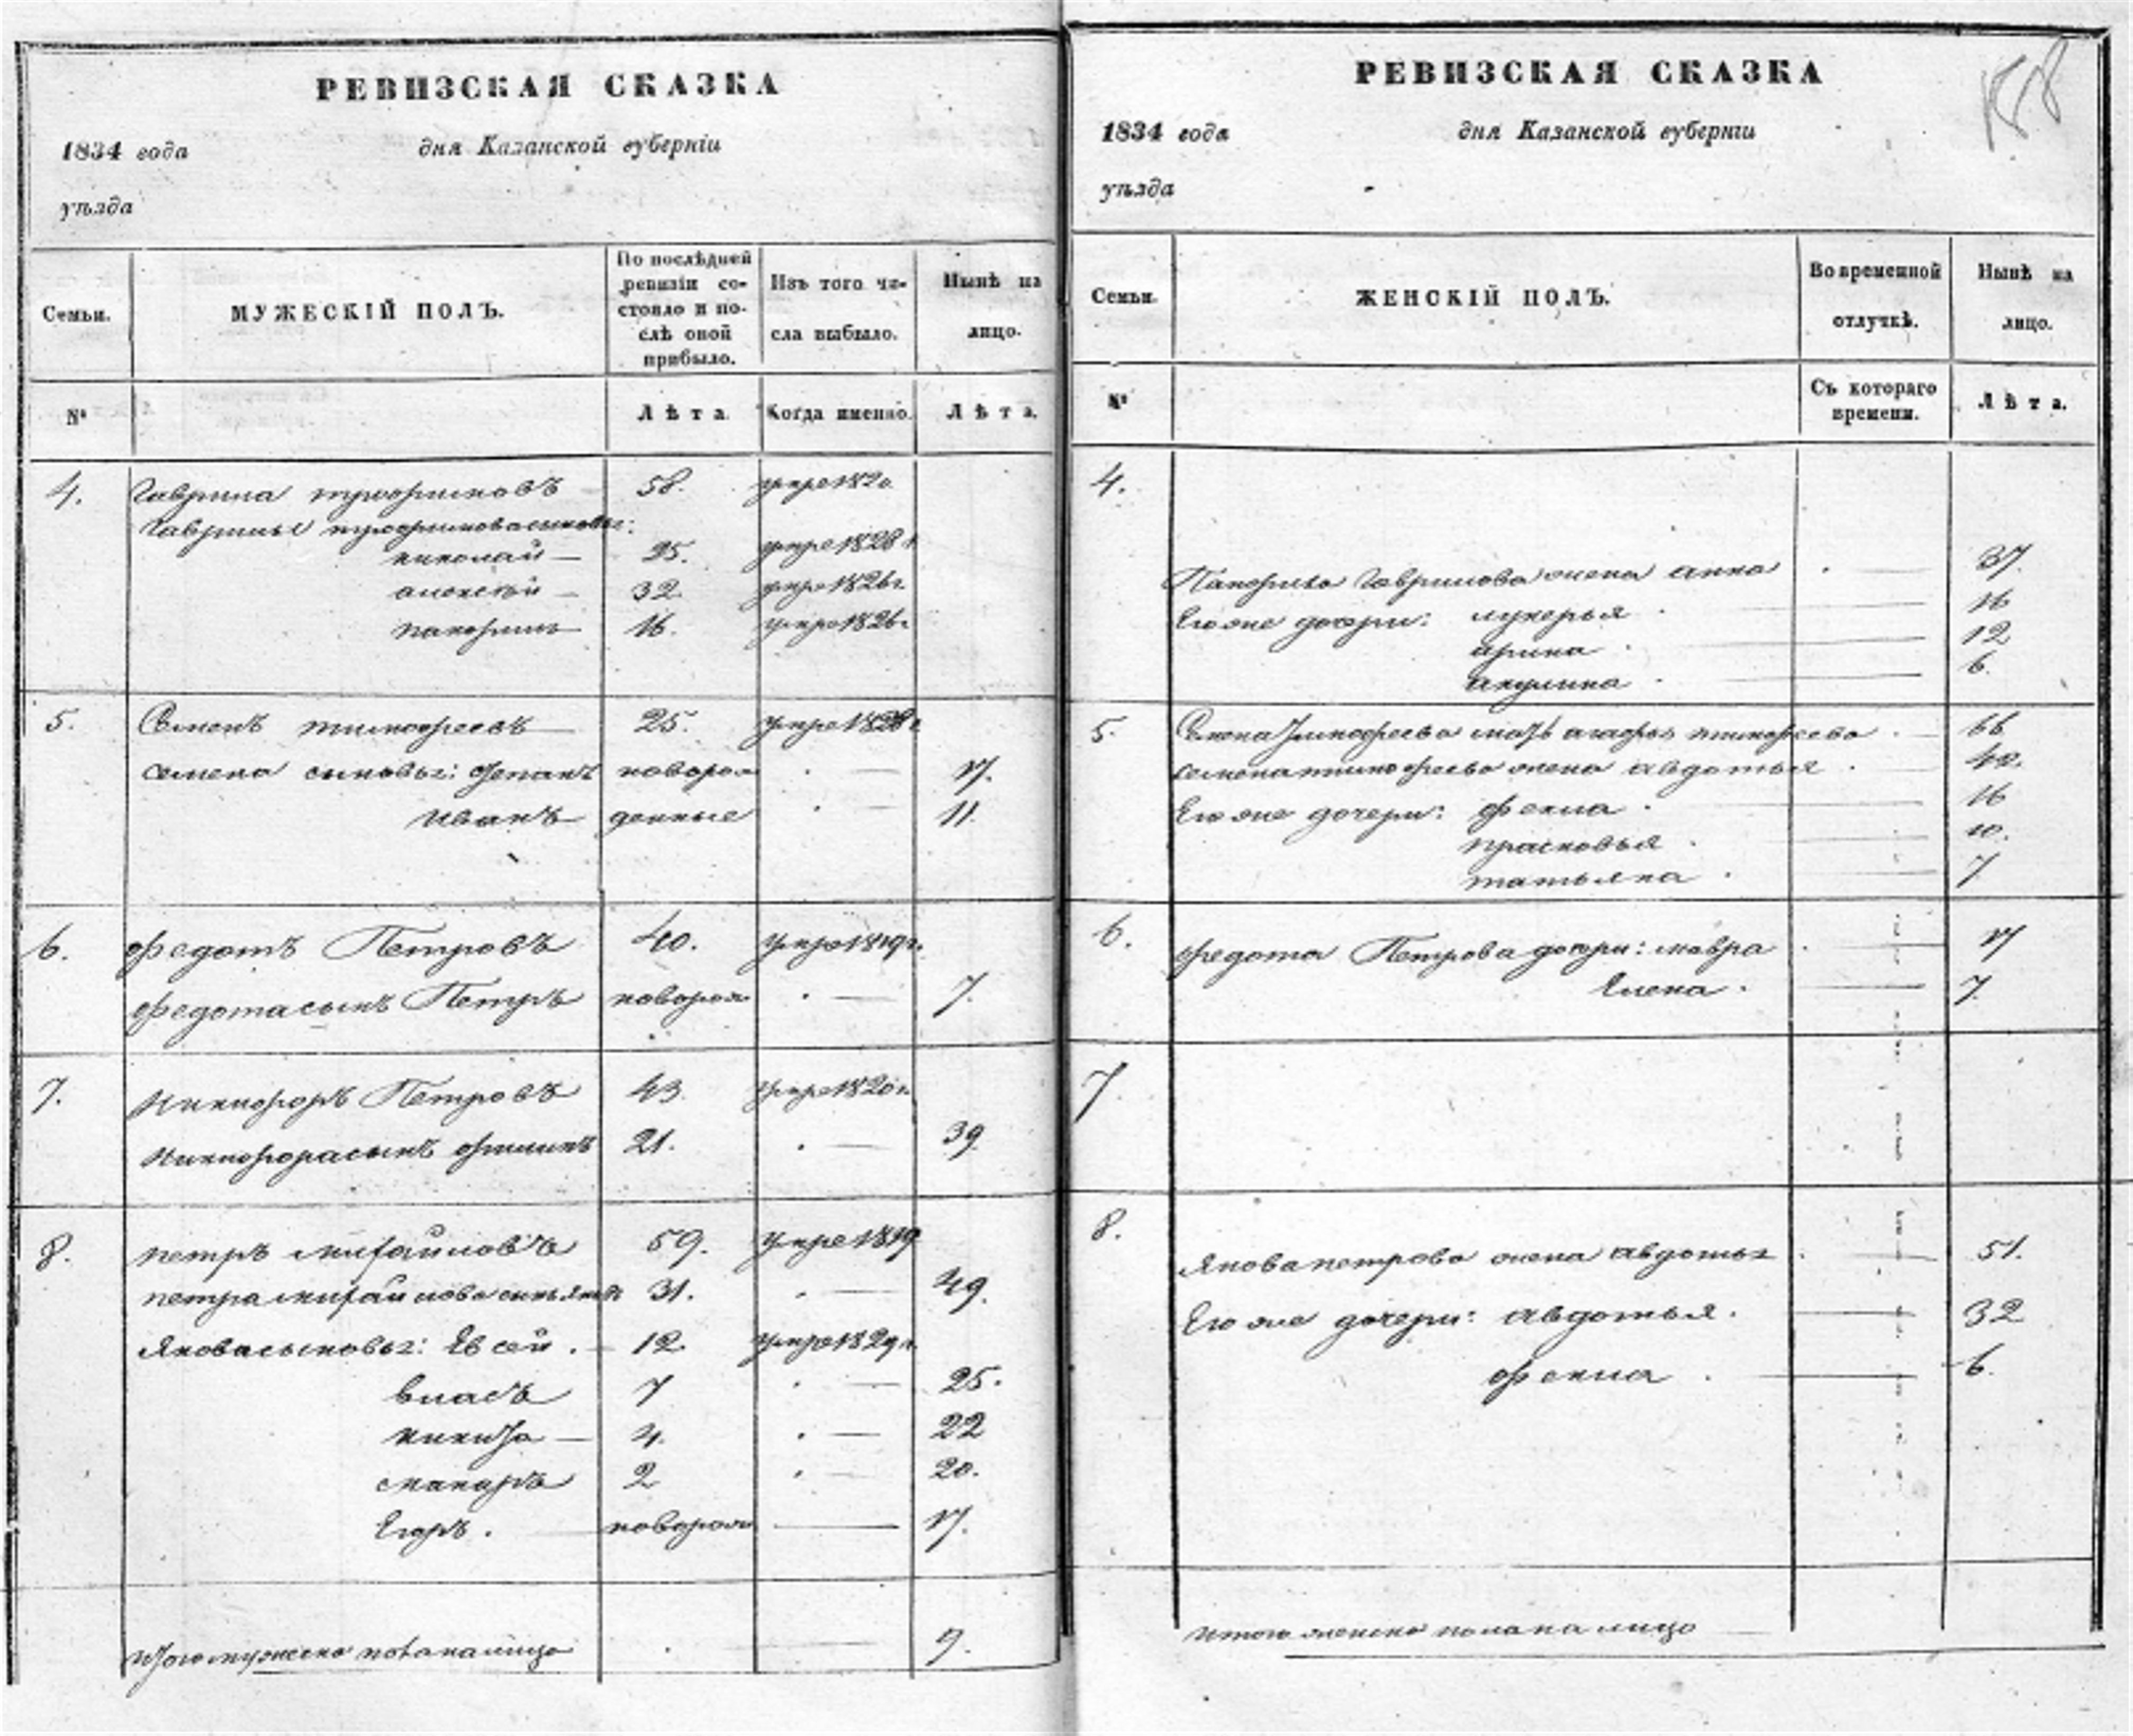 РЕВИЗСКАЯ СКАЗКА
1834 года дня Казанской губерніи
уѣзда
Семьи. МУЖЕСКІЙ ПОЛЪ. По послѣдней ревизіи состояло и послѣ оной прибыло. Изъ того числа выбыло. Нынѣ на лицо.
№ Лѣта. Когда именно. Лѣта.
4. Гаврила Трофимовъ 58. умре 1820
Гаврилы Трофимова сыновьи:
николай — 25. умре 1828 г.
алексѣй — 32. умре 1826 г.
панфилъ — 16. умре 1826 г.
5. Семенъ тимофеевъ 25. умре 1828 г.
семена сыновьи: степанъ новорож 17.
иванъ — денные 11.
6. федотъ Петровъ 40. умре 1819 г.
федота сынъ Петръ новорож 7.
7. никифоръ Петровъ 43. умре 1820 г.
никифора сынъ филипъ 21. 39.
8. петръ михайловъ 59. умре 1819
петра михайлова сынъ яковъ 31. 49.
якова сыновьи: Евсей. 12. умре 1829 г.
власъ 7 25.
никита — 4. 22
макаръ 2 20.
Егоръ. новорож 17.
итого мужеска пола на лицо 9.
РЕВИЗСКАЯ СКАЗКА
1834 года дня Казанской губерніи
уѣзда
Семьи. ЖЕНСКІЙ ПОЛЪ. Во временной отлучкѣ. Нынѣ на лицо.
№ Съ котораго времени. Лѣта.
4.
Панфила Гаврилова жена анна 37.
Его же дочери: лукерья 16
арина 12
акулина 6.
5. Семена Тимофеева мать агафья тимофеева 66
семена тимофеева жена авдотья 42.
Его же дочери: фекла 16
прасковья 10.
татьяна 7
6. федота Петрова дочери: мавра 17
Елена. 7.
7.
8. якова петрова жена авдотья 51.
Его же дочери: авдотья. 32
фекла 6.
итого женска пола на лицо